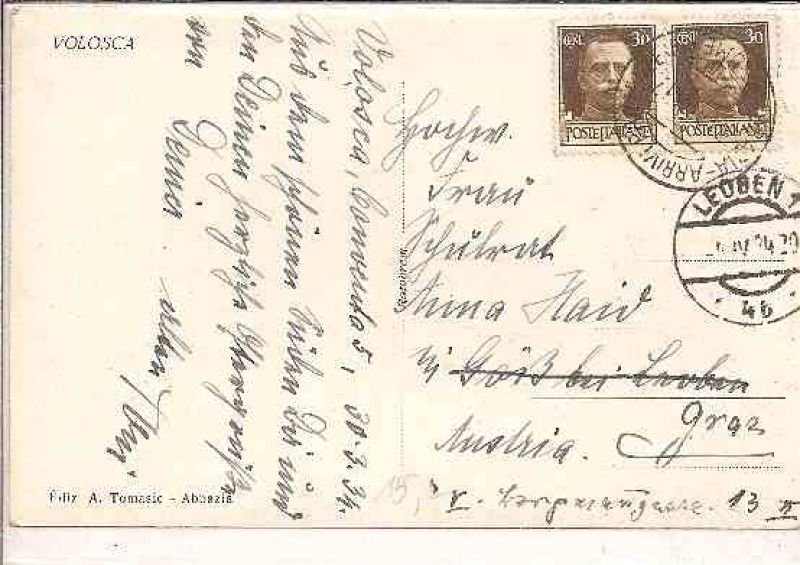 VOLOSCA
Volosca, 30.3.34.
Aus dem schönen Süden Dir und
den Deinen herzliche Ostergrüße
von Deiner alten
Ediz. A. Tomasic - Abbazia
CENT. 30
POSTE ITALIANE
CENT. 30
POSTE ITALIANE
ARRIVI
LEOBEN 1
4b
Hochw.
Frau
Schulrat
Anna Haid
Göß bei Leoben
Graz
Austria.
15,
V. 13 II